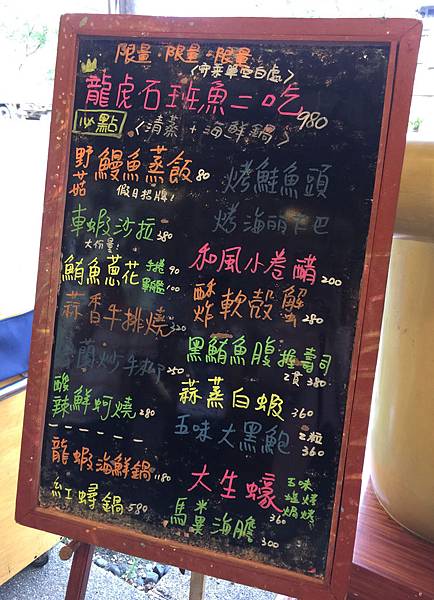 限量·限量·限量
〈寫菜單空白處〉
龍虎石班魚二吃 980
必點 〈清蒸+海鮮鍋〉
野菇鰻魚蒸飯 80
假日招牌!
車蝦沙拉 380
大份量!
鮪魚蔥花 手捲 90
軍艦 100
蒜香牛排燒 320
炒牛柳 250
酸辣鮮蚵燒 280
龍蝦海鮮鍋 1180
紅蟳鍋 580
烤鮭魚頭
烤海鱺下巴
和風小卷醋 200
酥炸軟殼蟹 280
黑鮪魚腹握壽司
2貫 380
蒜蒸白蝦 360
五味大黑鮑 2粒 360
大生蠔 五味 塩烤 焗烤
360
馬糞海膽 300